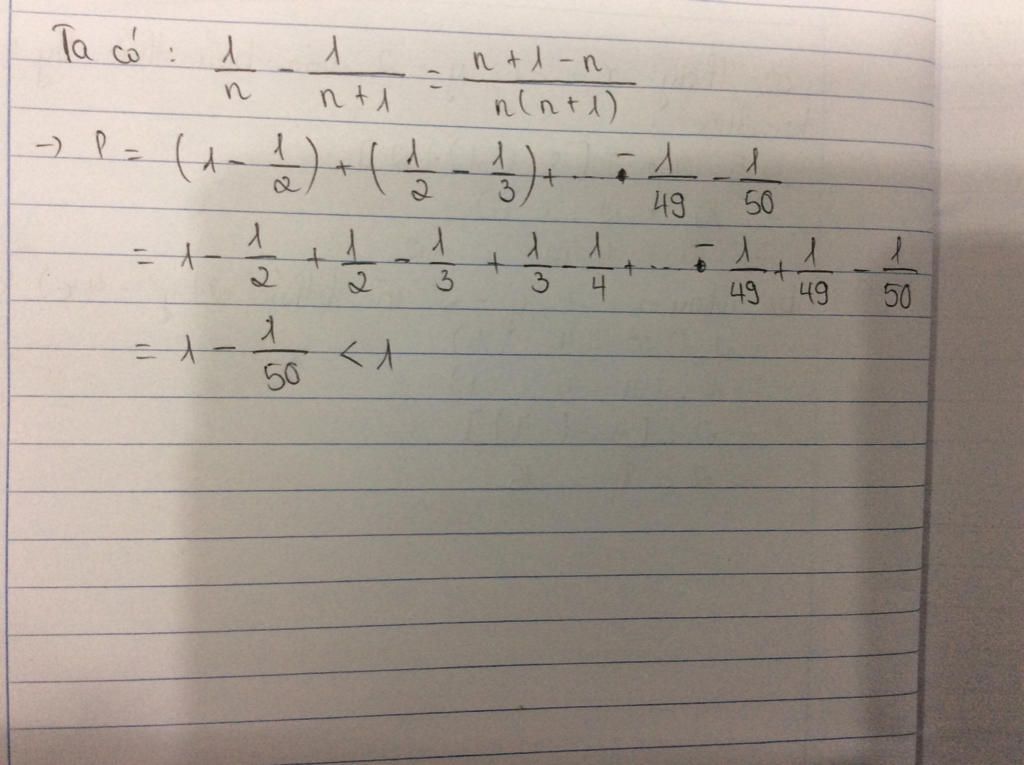 Ta có : 1/n - 1/(n+1) = (n+1-n)/(n(n+1))
→ P = (1 - 1/2) + (1/2 - 1/3) + ... - 1/49 - 1/50
= 1 - 1/2 + 1/2 - 1/3 + 1/3 - 1/4 + ... - 1/49 + 1/49 - 1/50
= 1 - 1/50 < 1